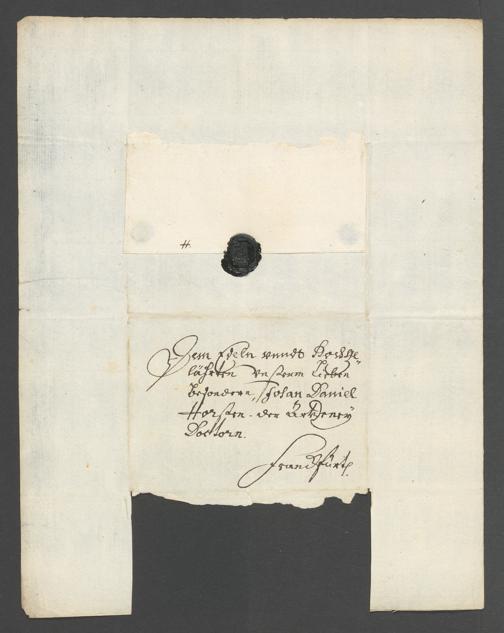 #
Dem Edeln vnndt Hochge„
lährten vnserm Lieben
besondern, Johan Daniel
Horsten. der Artzeney
Doctorn.
Franckfurt.